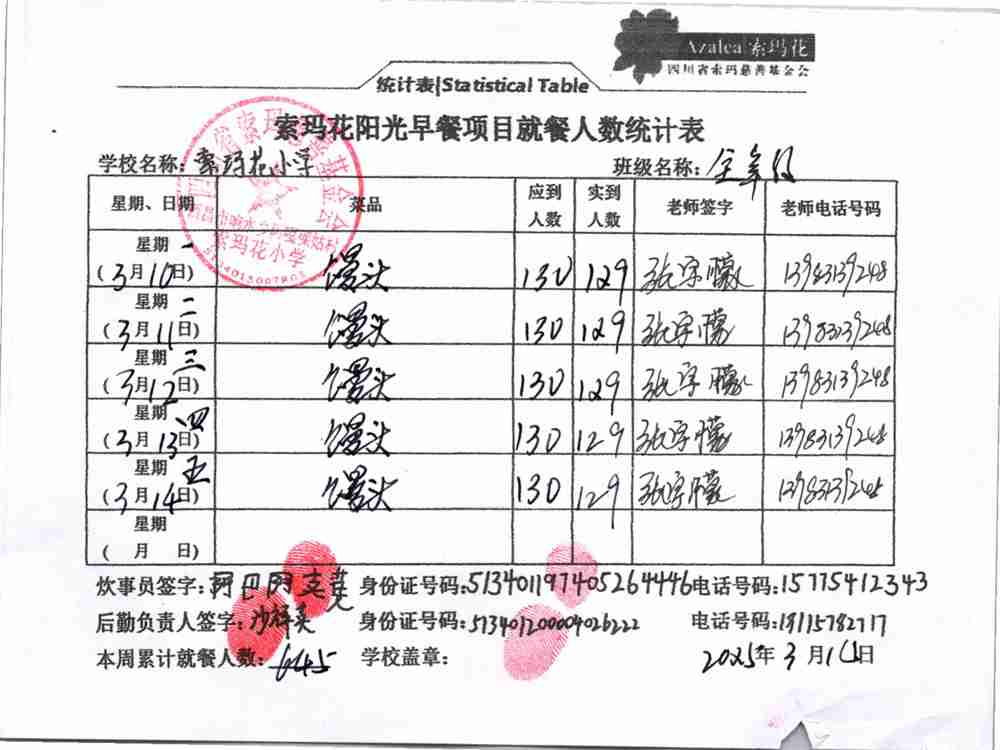 Azalea 索玛花
四川省索玛慈善基金会
统计表|Statistical Table
索玛花阳光早餐项目就餐人数统计表
学校名称：索玛花小学 班级名称：全年级
星期、日期 菜品 应到人数 实到人数 老师签字 老师电话号码
星期一
(3月10日) 馒头 130 129 张宇 13983139248
星期二
(3月11日) 馒头 130 129 张宇 13983139248
星期三
(3月12日) 馒头 130 129 张宇 13983139248
星期四
(3月13日) 馒头 130 129 张宇 13983139248
星期五
(3月14日) 馒头 130 129 张宇 13983139248
星期
( 月 日)
索玛花小学
炊事员签字：阿巴阿支 身份证号码：513401197405264446 电话号码：15775412343
后勤负责人签字： 身份证号码：513401200004026222 电话号码：18115782717
本周累计就餐人数：645 学校盖章：
2025年3月 日